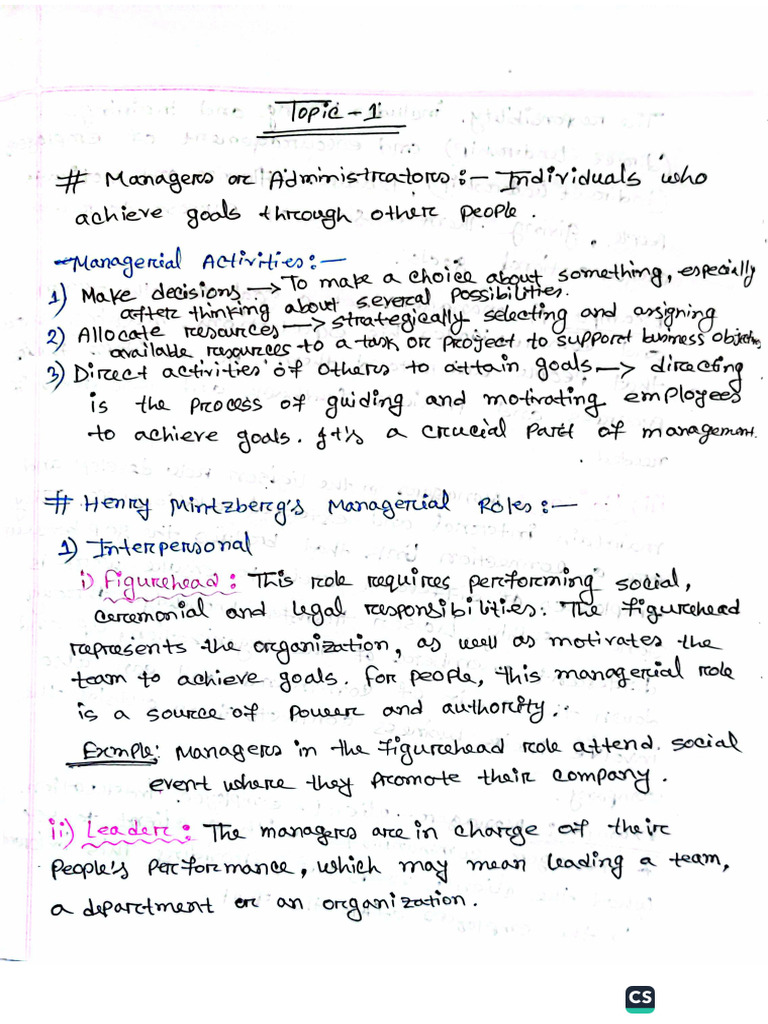 Topic - 1
# Managers or Administrators :- Individuals who
achieve goals through other people.
Managerial Activities :-
1) Make decisions → To make a choice about something, especially
after thinking about several possibilities.
2) Allocate resources → strategically selecting and assigning
available resources to a task or project to support business objectives
3) Direct activities of others to attain goals → directing
is the process of guiding and motivating employees
to achieve goals. It's a crucial part of management.
# Henry Mintzberg's Managerial Roles :-
1) Interpersonal
i) Figurehead : This role requires performing social,
ceremonial and legal responsibilities. The figurehead
represents the organization, as well as motivates the
team to achieve goals. for people, this managerial role
is a source of power and authority.
Exmple: Managers in the figurehead role attend social
event where they promote their company.
ii) Leader : The managers are in charge of their
people's performance, which may mean leading a team,
a department or an organization.
CS